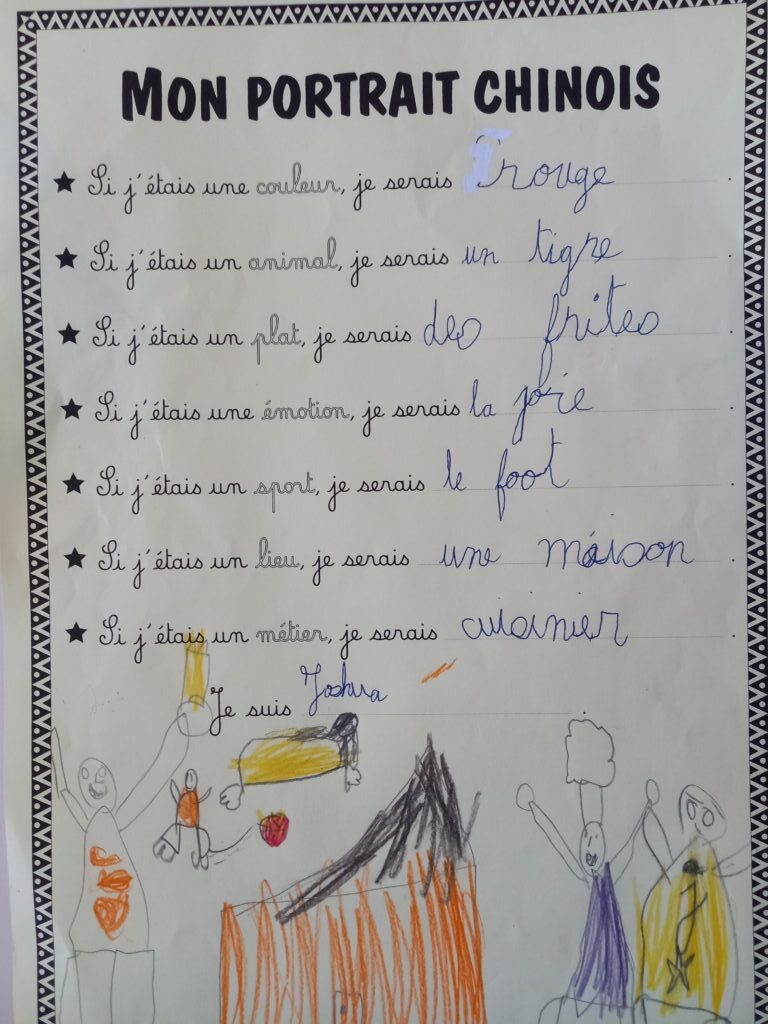 MON PORTRAIT CHINOIS
★ Si j'étais une couleur, je serais rouge.
★ Si j'étais un animal, je serais un tigre.
★ Si j'étais un plat, je serais des frites.
★ Si j'étais une émotion, je serais la joie.
★ Si j'étais un sport, je serais le foot.
★ Si j'étais un lieu, je serais une maison.
★ Si j'étais un métier, je serais cuisinier.
Je suis Joshua.